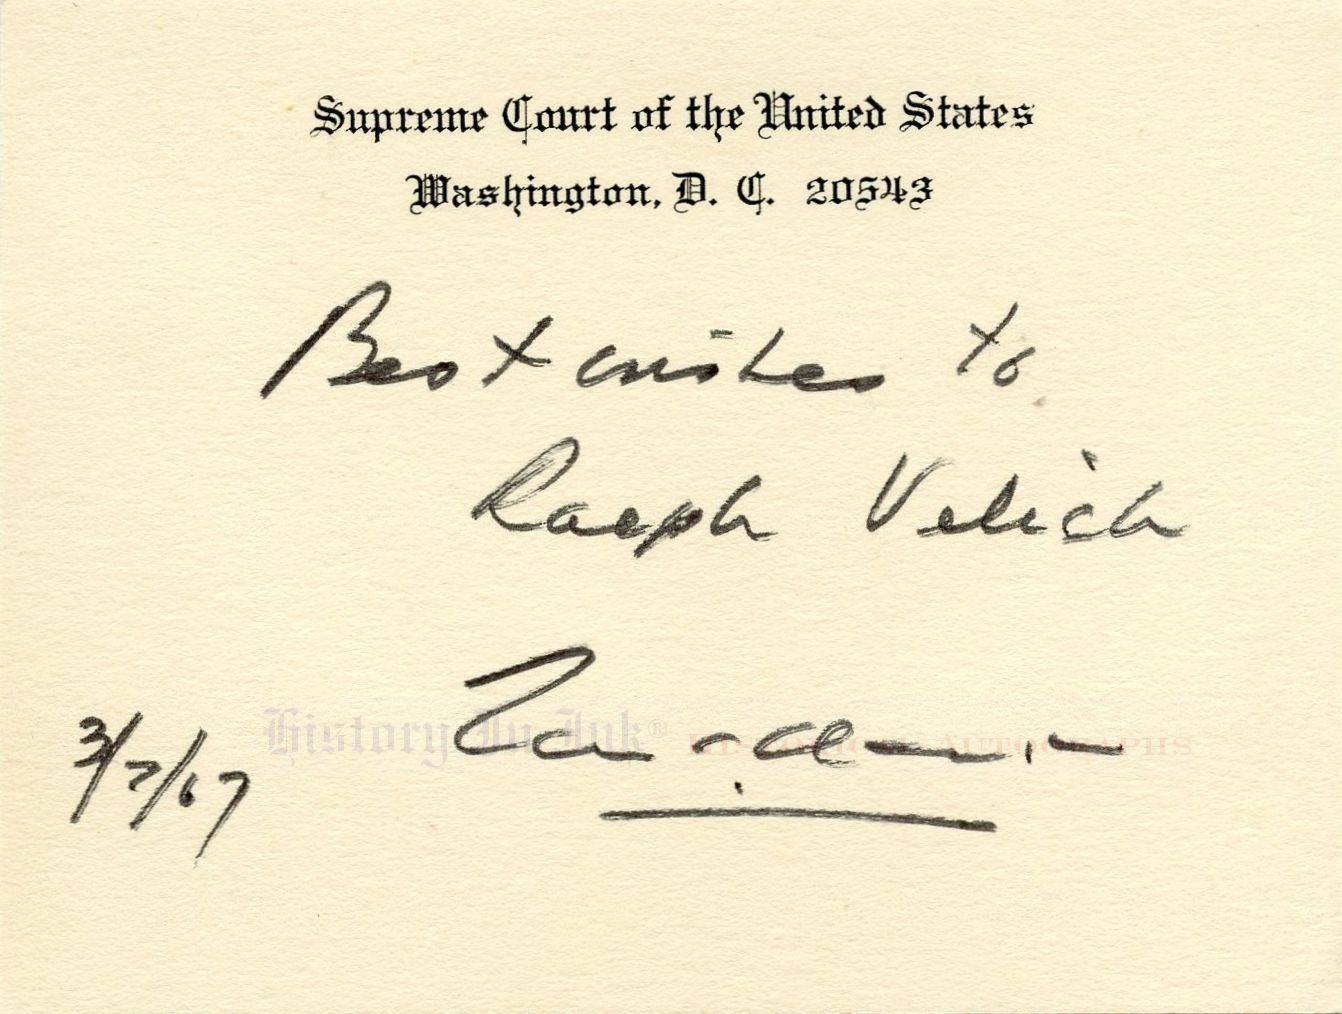 Supreme Court of the United States
Washington, D. C. 20543
Best wishes to
Ralph Velich
3/7/67
History In Ink® HISTORICAL AUTOGRAPHS